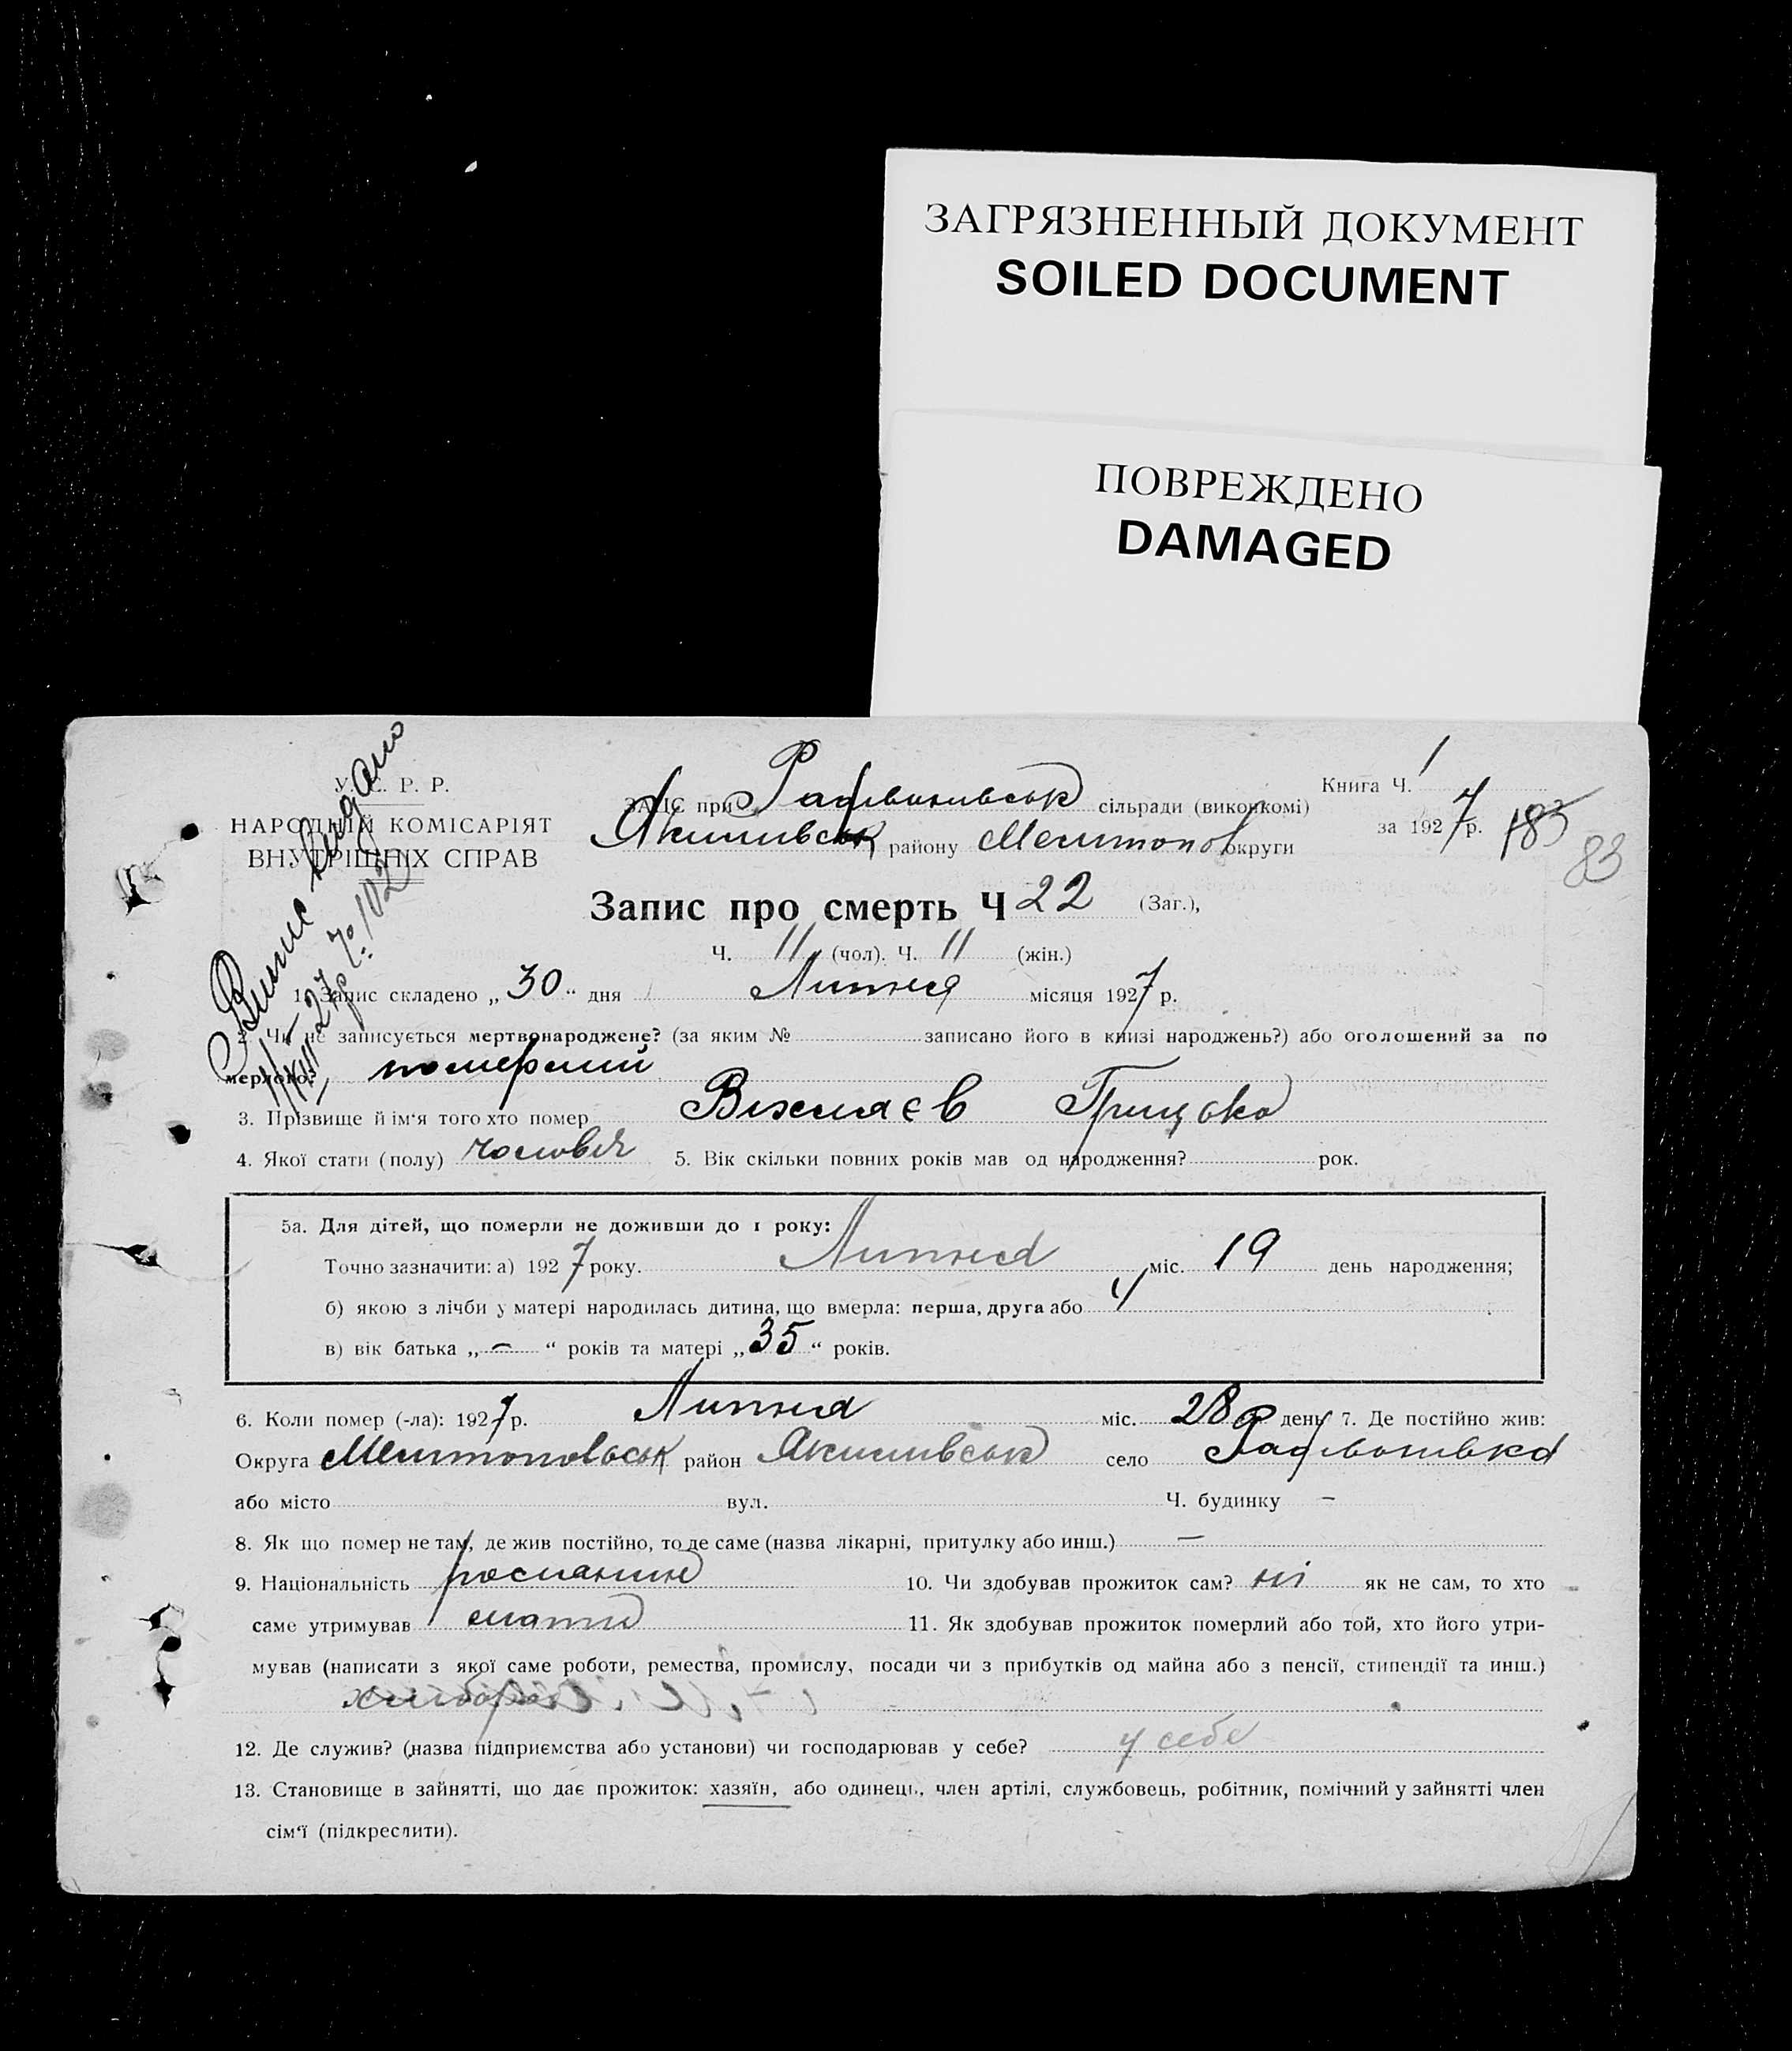 ЗАГРЯЗНЕННЫЙ ДОКУМЕНТ
SOILED DOCUMENT
ПОВРЕЖДЕНО
DAMAGED
У. С. Р. Р.
НАРОДНІЙ КОМІСАРІЯТ
ВНУТРІШНІХ СПРАВ
Випис видано
ЗАПІС при сільради (виконкомі)
Якимівськ району Мелитопол округи
Книга Ч. 1
за 1927 р. 183
83
Запис про смерть Ч 22 (Заг.),
Ч. 11 (чол). Ч. 11 (жін.)
1. Запис складено „30“ дня Липня місяця 1927 р.
2. Чи не записується мертвонароджене? (за яким № записано його в книзі народжень?) або оголошений за по
мерлого? померший
3. Прізвище й ім‘я того хто помер Грицько
4. Якої стати (полу) чоловіч 5. Вік скільки повних років мав од народження? рок.
5а. Для дітей, що померли не доживши до 1 року:
Точно зазначити: а) 1927 року. Липня міс. 19 день народження;
б) якою з лічби у матері народилась дитина, що вмерла: перша, друга або 4
в) вік батька „ – “ років та матері „35“ років.
6. Коли помер (-ла): 1927 р. Липня міс. 28 день 7. Де постійно жив:
Округа Мелитопольськ район Якимівськ село
або місто вул. Ч. будинку –
8. Як що помер не там, де жив постійно, то де саме (назва лікарні, притулку або инш.) –
9. Національність росиянин 10. Чи здобував прожиток сам? ні як не сам, то хто
саме утримував мати 11. Як здобував прожиток померлий або той, хто його утри-
мував (написати з якої саме роботи, ремества, промислу, посади чи з прибутків од майна або з пенсії, стипендії та инш.)
12. Де служив? (назва підприємства або установи) чи господарював у себе? у себе
13. Становище в зайнятті, що дає прожиток: хазяїн, або одинець, член артілі, службовець, робітник, помічний у зайнятті член
сім‘ї (підкреслити).